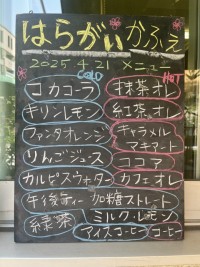 はらがいかふぇ
2025 4 21 メニュー
COLD HOT
コカコーラ 抹茶オレ
キリンレモン 紅茶オレ
ファンタオレンジ キャラメル
マキアート
りんごジュース ココア
カルピスウォーター カフェオレ
午後ティー 加糖ストレート
緑茶 ミルク・レモン
アイスコーヒー コーヒー